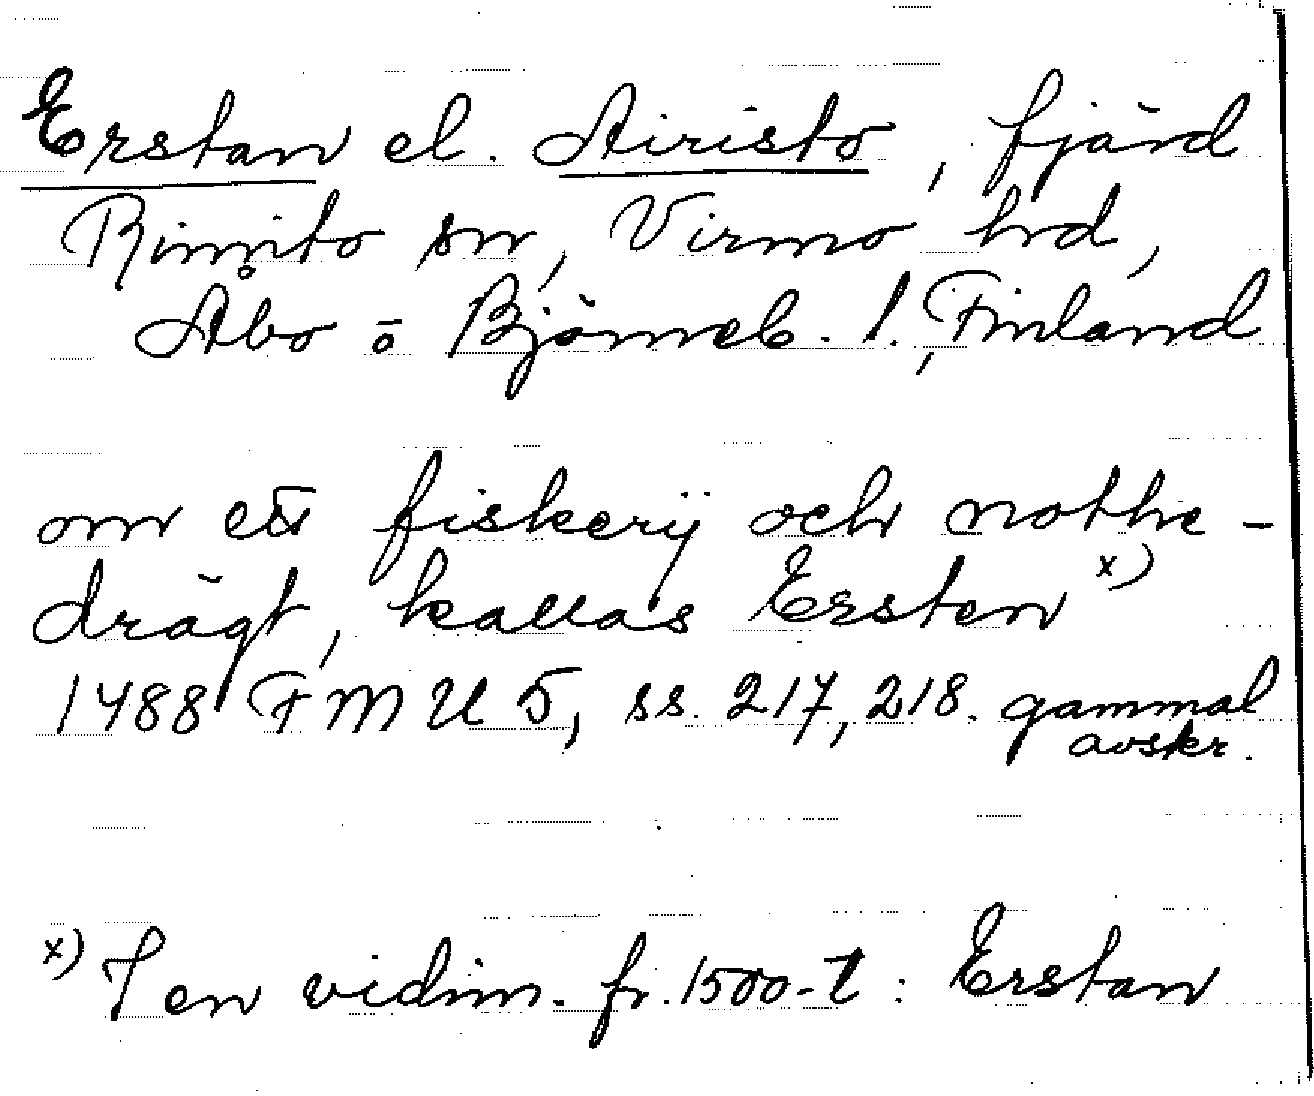 Erstan el. Airisto, fjärd
Rimito sn, Virmo hrd,
Åbo o Björneb. l., Finland
om ett fiskerij och nothe-
drägt, kallas Ersten x)
1488 FMU 5, ss. 217, 218. gammal
avskr.
x) I en vidim. fr. 1500-t : Erstan